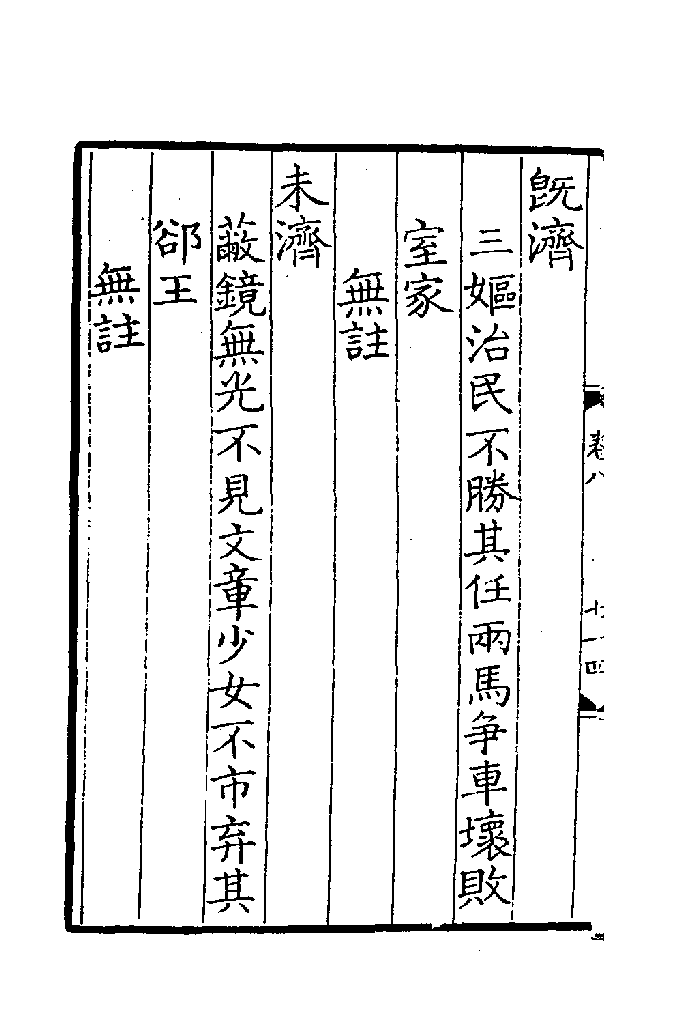 既濟
三嫗治民不勝其任兩馬爭車壞敗
室家
無註
未濟
蔽鏡無光不見文章少女不市弃其
郤王
無註
卷八
七十四